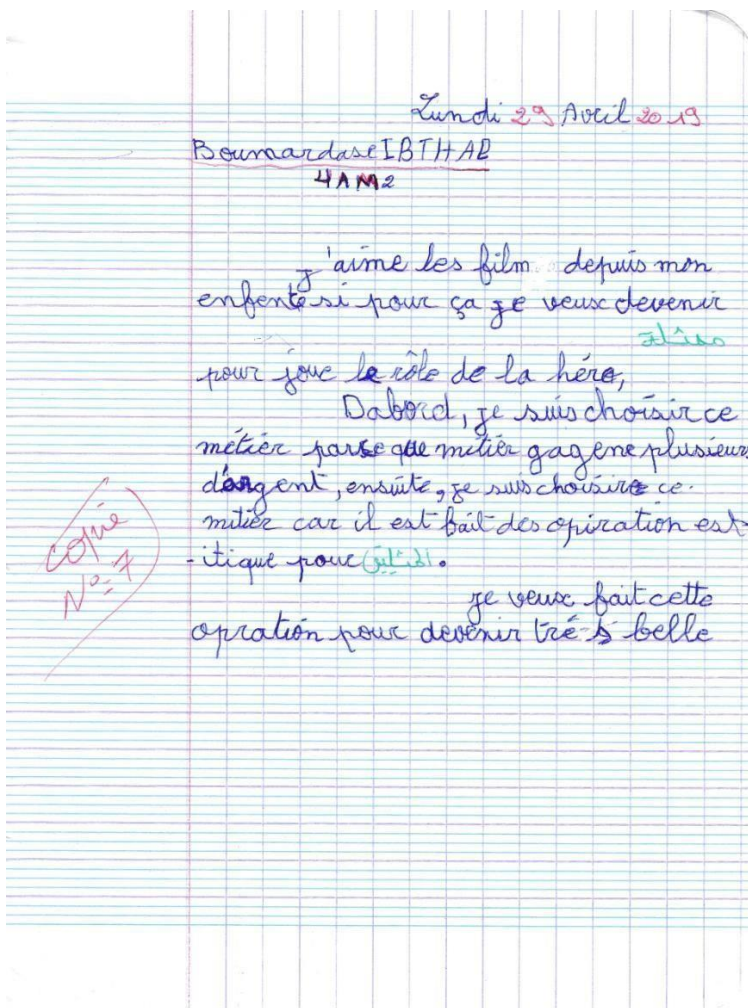 Lundi 29 Avril 2019
Boumardase IBTHAL
4AM2
J'aime les film depuis mon
enfentesi pour ça je veux devenir
ممثلة
pour joue le rôle de la héro,
Dabord, je suis choisir ce
métier parse que mitiér gagene plusieurs
d'argent, ensuite, je suis choisire ce.
mitier car il est fait des opiration est-
-itique pour الممثلين.
je veux fait cette
opration pour devenir tré-s belle
copie
N°=7